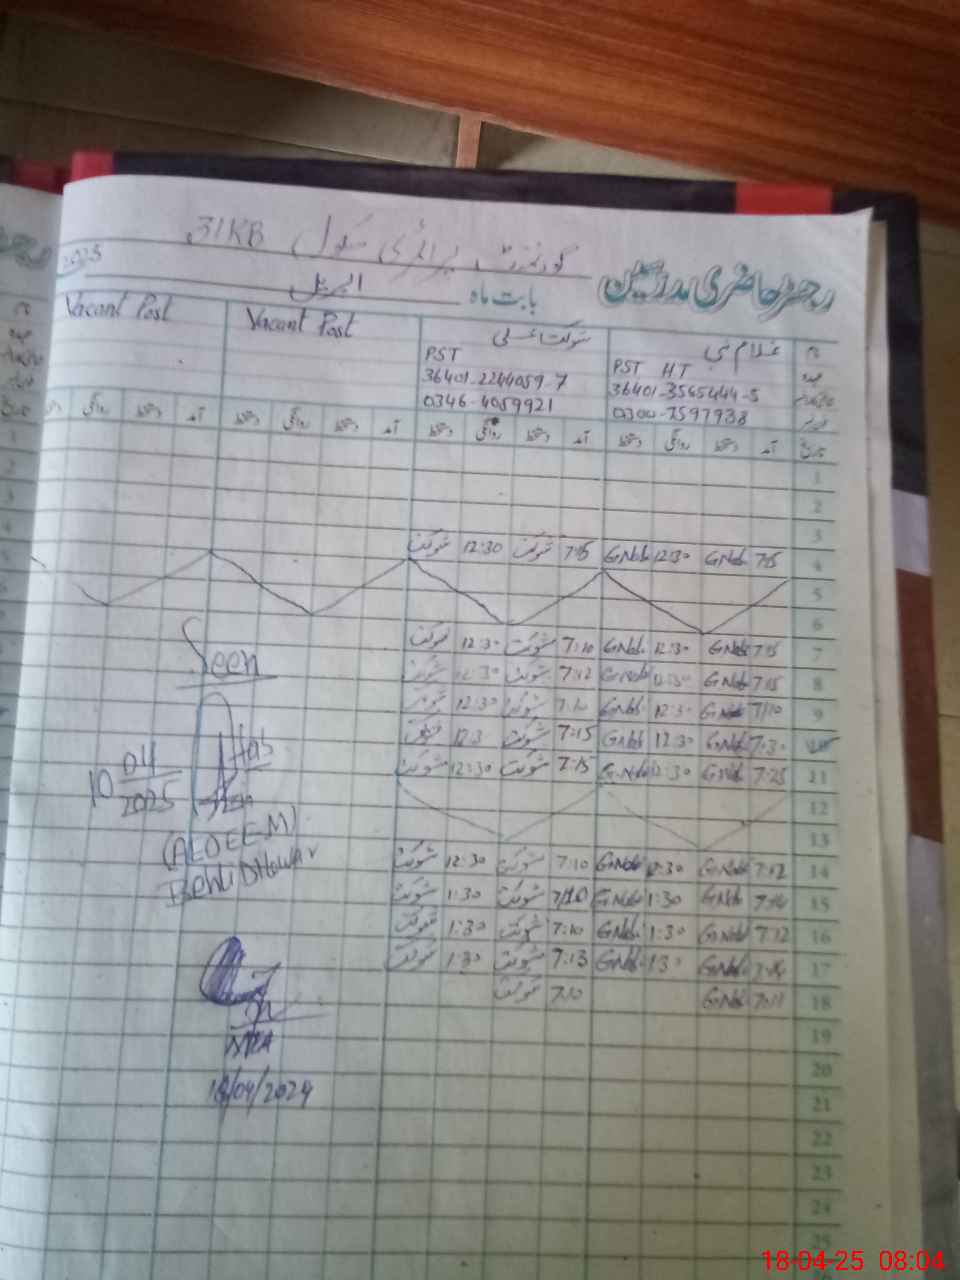 گورنمنٹ پرائمری سکول 31KB
رجسٹر حاضری مدرسین
بابت ماہ اپریل 2025
نام غلام نبی شوکت علی Vacant Post Vacant Post
عہدہ PST HT PST
36401-3565444-5 36401-2244059-7
0300-7597938 0346-4059921
تاریخ آمد دستخط روانگی دستخط آمد دستخط روانگی دستخط آمد دستخط روانگی دستخط آمد دستخط روانگی
1
2
3
4 7:15 GNabi 12:30 GNabi 7:15 شوکت 12:30 شوکت
5
6
7 7:15 GNabi 12:30 GNabi 7:10 شوکت 12:30 شوکت
8 7:15 GNabi 12:30 GNabi 7:12 شوکت 12:30 شوکت
9 7:10 GNabi 12:30 GNabi 7:10 شوکت 12:30 شوکت
10 7:30 GNabi 12:30 GNabi 7:15 شوکت 12:3 شوکت
11 7:25 GNabi 12:30 G.Nabi 7:15 شوکت 12:30 شوکت
12
13
14 7:12 GNabi 12:30 GNabi 7:10 شوکت 12:30 شوکت
15 GNabi 1:30 GNabi 7:10 شوکت 1:30 شوکت
16 7:12 GNabi 1:30 GNabi 7:10 شوکت 1:30 شوکت
17 GNabi 1:30 GNabi 7:13 شوکت 1:30 شوکت
18 7:11 GNabi 7:10 شوکت
19
20
21
22
23
24
25
Seen
10 04
2025
(AEO EEM)
MEA
18/04/2024
18-04-25 08:04